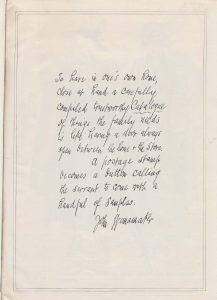 To have in one's own home,
close at hand a carefully
compiled trustworthy Catalogue
of things the family needs
is like having a door always
open between the home & the Store.
A postage stamp
becomes a button calling
the servant to come with a
handful of Samples.
John Wanamaker